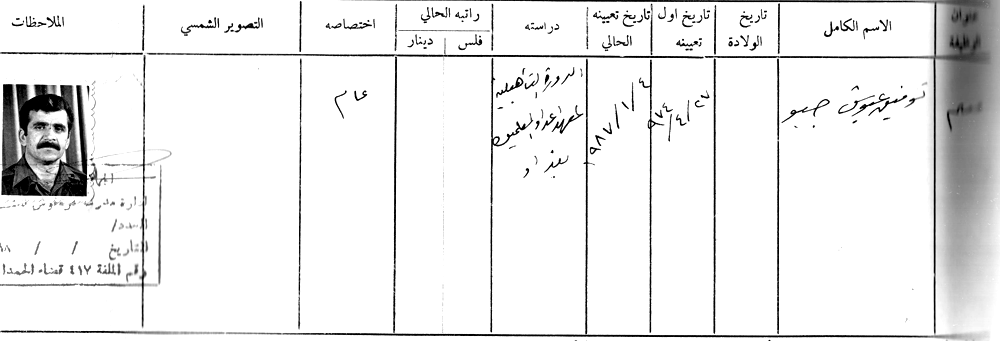 عنوان الوظيفة
الاسم الكامل
تاريخ الولادة
تاريخ اول تعيينه
تاريخ تعيينه الحالي
دراسته
راتبه الحالي
فلس
دينار
اختصاصه
التصوير الشمسي
الملاحظات
معلم
توفيق عبوش ججو
٩٧٤/٤/٢٧
١٩٨٧/١/٤
الدورة التأهيلية
لمعهد اعداد المعلمين
بغداد
عام
ادارة مدرسة
العدد/
التاريخ / /
رقم الملفة ٤١٧ قضاء الحمدا